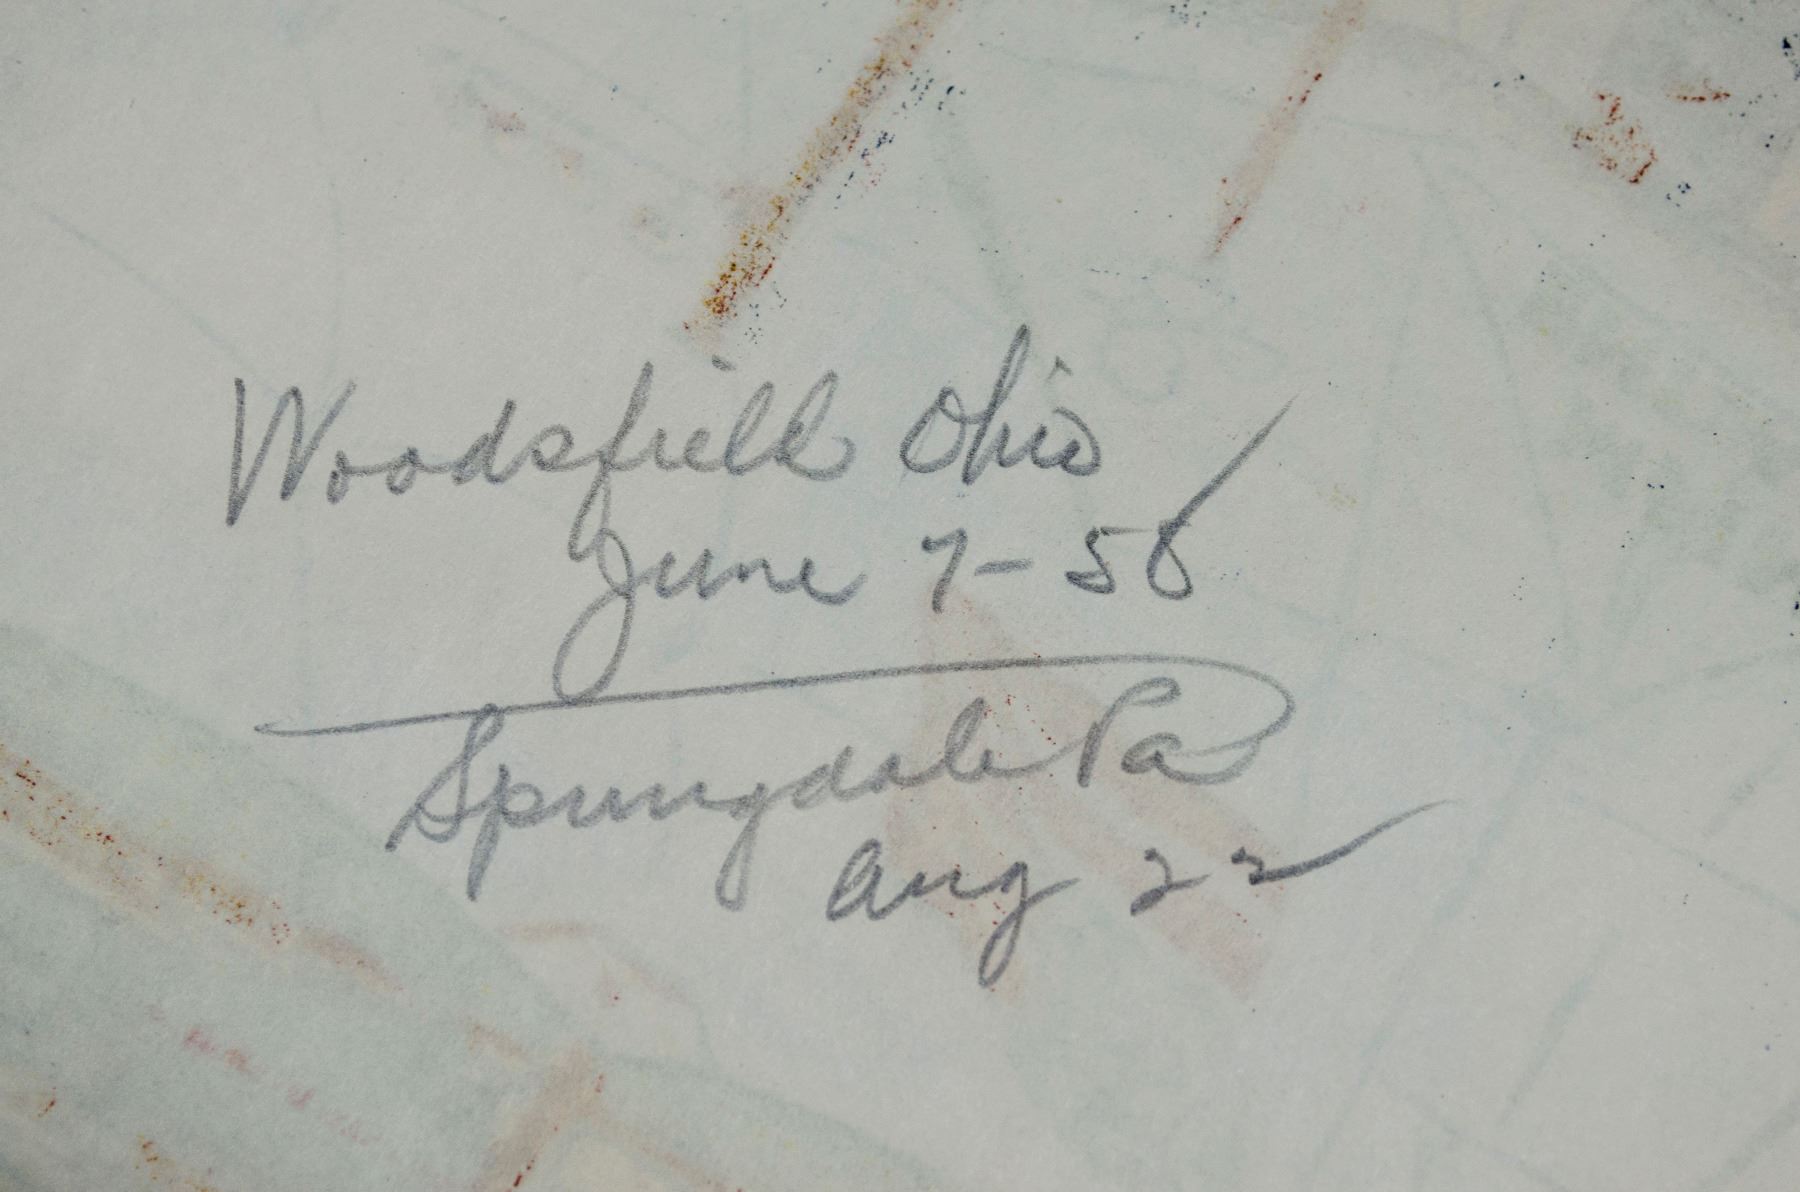 Woodsfield Ohio
June 7-58
Springdale Pa
Aug 22